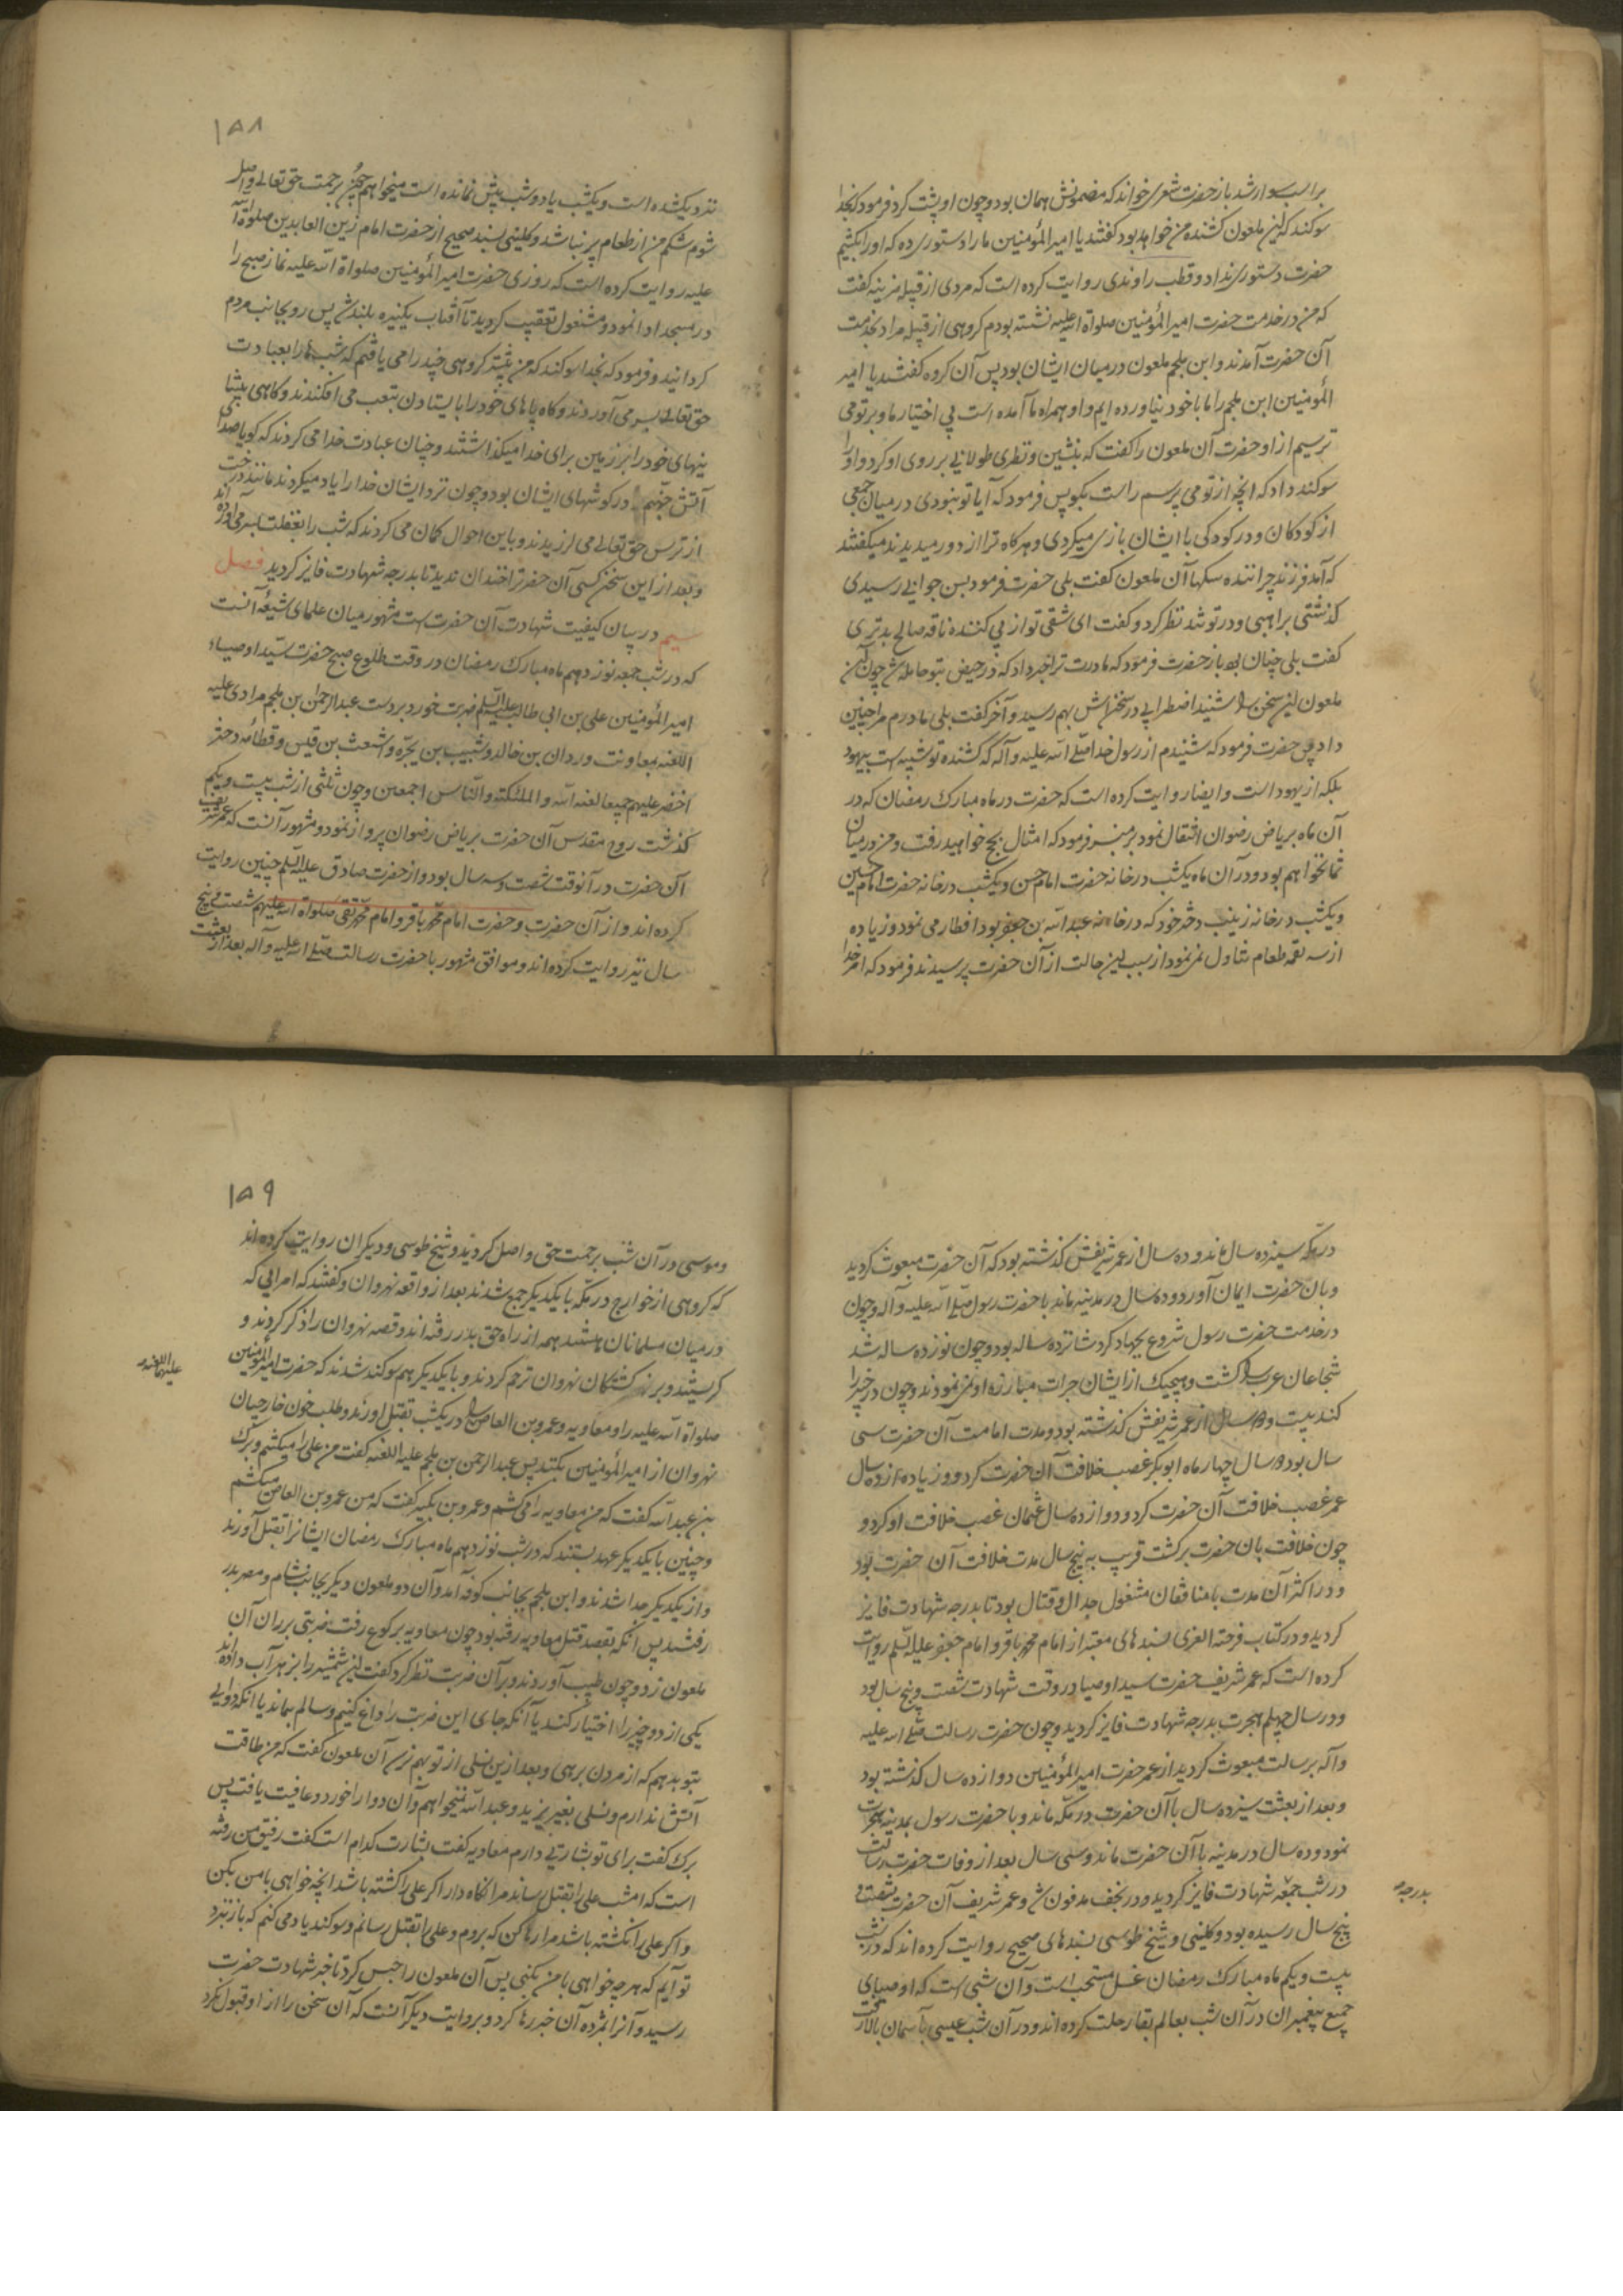 بر اسب سوار شد باز حضرت شعری خواند که مضمونش همان بود و چون او پشت کرد فرمود که بخدا
سوکند که این ملعون کشنده من خواهد بود کفتند یا امیر المؤمنین ما را دستوری ده که او را بکشیم
حضرت دستوری نداد و قطب راوندی روایت کرده است که مردی از قبیله مزینه کفت
که من در خدمت حضرت امیر المؤمنین صلواة الله علیه نشسته بودم کروهی از قبیله مراد بخدمت
آن حضرت آمدند و ابن ملجم ملعون در میان ایشان بود پس آن کروه کفتند یا امیر
المؤمنین ابن ملجم را ما با خود نیاورده ایم و او همراه ما آمده است بی اختیار ما و بر تو می
ترسیم از او حضرت آن ملعون را کفت که بنشین و نظری طولانی بر روی او کرد و او را
سوکند داد که انچه از تو می پرسم راست بکو پس فرمود که آیا تو نبودی در میان جمعی
از کودکان و در کودکی با ایشان بازی میکردی و هرکاه ترا از دور میدیدند میکفتند
که آمد فرزند چراننده سکها آن ملعون کفت بلی حضرت فرمود پس جوانی رسیدی
کذشتی براهبی و در تو تند نظر کرد و کفت ای شقی تو از پی کننده ناقه صالح بدتری
کفت بلی چنان بود باز حضرت فرمود که مادرت ترا خبر داد که در حیض بتو حامله شد چون این
ملعون این سخن را شنید اضطرابی در سخنانش بهم رسید و آخر کفت بلی مادرم مرا چنین
داد پس حضرت فرمود که شنیدم از رسول خدا صلی الله علیه و آله که کشنده تو شبیه است بیهود
بلکه از یهود است و ایضا روایت کرده است که حضرت در ماه مبارک رمضان که در
آن ماه بریاض رضوان انتقال نمود بر منبر فرمود که امثال بحج خواهید رفت و من در میان
شما نخواهم بود و در آن ماه یکشب در خانه حضرت امام حسن و یکشب در خانه حضرت امام حسین
و یکشب در خانه زینب دختر خود که در خانه عبد الله بن جعفر بود افطار می نمود و زیاده
از سه لقمه طعام تناول نمی نمود از سبب این حالت از آن حضرت پرسیدند فرمود که امر خدا
۱۵۸
نزدیک شده است و یکشب یا دو شب پیش نمانده است میخواهم چون برحمت حق تعالی واصل
شوم شکم من از طعام پر نباشد و کلینی بسند صحیح از حضرت امام زین العابدین صلوة الله
علیه روایت کرده است که روزی حضرت امیر المؤمنین صلواة الله علیه نماز صبح را
در مسجد ادا نمود و مشغول تعقیب کردید تا آفتاب یکنیزه بلند شد پس رو بجانب مردم
کردانید و فرمود که بخدا سوکند که من پیشتر کروهی چند را می یافتم که شبها را بعبادت
حق تعالی بسر می آوردند و کاه پاهای خود را بایستادن بتعب می افکندند و کاهی پیشا
نیهای خود را بر زمین برای خدا میکذاشتند و چنان عبادت خدا می کردند که کویا صدای
آتش جهنم در کوشهای ایشان بود و چون نزد ایشان خدا را یاد میکردند مانند درخت
از ترس حق تعالی می لرزیدند و باین احوال کمان می کردند که شب را بغفلت بسر می آورده اند
و بعد از این سخن کسی آن حضرت را خندان ندید تا بدرجه شهادت فایز کردید فصل
سیم در بیان کیفیت شهادت آن حضرت است مشهور میان علمای شیعه آنست
که در شب جمعه نوزدهم ماه مبارک رمضان در وقت طلوع صبح حضرت سید اوصیاء
امیر المؤمنین علی بن ابی طالب علیه السلم ضربت خورد بر دست عبد الرحمن بن ملجم مرادی علیه
اللعنه بمعاونت وردان بن خالد و شبیب بن بجره و اشعث بن قیس و قطامه دختر
اخضر علیهم جمیعا لعنة الله و الملئکة و الناس اجمعین و چون ثلثی از شب بیست و یکم
کذشت روح مقدس آن حضرت بریاض رضوان پرواز نمود و مشهور آنست که عمر شریف
آن حضرت در آنوقت شصت و سه سال بود و از حضرت صادق علیه السلم چنین روایت
کرده اند و از آن حضرت و حضرت امام محمد باقر و امام محمد تقی صلواة الله علیهم شصت و پنج
سال نیز روایت کرده اند و موافق مشهور با حضرت رسالت صلی الله علیه و آله بعد از بعثت
در مکه سیزده سال ماند و ده سال از عمر شریفش کذشته بود که آن حضرت مبعوث کردید
و بان حضرت ایمان آورد و ده سال در مدینه ماند با حضرت رسول صلی الله علیه و آله و چون
در خدمت حضرت رسول شروع بجهاد کرد شانزده ساله بود و چون نوزده ساله شد
شجاعان عرب را کشت و هیچیک از ایشان جرات مبارزه او نمی نمودند و چون در خیبر را
کند بیست و دو سال از عمر شریفش کذشته بود و مدت امامت آن حضرت سی
سال بود دو سال چهار ماه ابو بکر غصب خلافت آن حضرت کرد و زیاده از ده سال
عمر غصب خلافت آن حضرت کرد و دوازده سال عثمان غصب خلافت او کرد و
چون خلافت بان حضرت برکشت قریب به پنج سال مدت خلافت آن حضرت بود
و در اکثر آن مدت با منافقان مشغول جدال و قتال بود تا بدرجه شهادت فایز
کردید و در کتاب فرحة الغری بسندهای معتبر از امام محمد باقر و امام جعفر علیه السلم روایت
کرده است که عمر شریف حضرت سید اوصیا در وقت شهادت شصت و پنج سال بود
و در سال چهلم هجرت بدرجه شهادت فایز کردید و چون حضرت رسالت صلی الله علیه
و آله برسالت مبعوث کردید از عمر حضرت امیر المؤمنین دوازده سال کذشته بود
و بعد از بعثت سیزده سال با آن حضرت در مکه ماند و با حضرت رسول بمدینه هجرت
نمود و ده سال در مدینه با آن حضرت ماند و سی سال بعد از وفات حضرت رسالت
در شب جمعه شهادت فایز کردید و در نجف مدفون شد و عمر شریف آن حضرت بشصت و
بدرجه
پنج سال رسیده بود و کلینی و شیخ طوسی بسندهای صحیح روایت کرده اند که در شب
بیست و یکم ماه مبارک رمضان غسل مستحب است و آن شبی است که اوصیای
جمیع پیغمبران در آن شب بعالم بقا رحلت کرده اند و در آن شب عیسی بآسمان بالا رفت
۱۵۹
و موسی در آن شب برحمت حق واصل کردید و شیخ طوسی و دیکران روایت کرده اند
که کروهی از خوارج در مکه با یکدیکر جمع شدند بعد از واقعه نهروان و کفتند که امرائی که
در میان مسلمانان هستند همه از راه حق بدر رفته اند و قصه نهروان را ذکر کردند و
کریستند و بر کشتکان نهروان ترحم کردند و با یکدیکر هم سوکند شدند که حضرت امیر المؤمنین
صلواة الله علیه را و معاویه و عمرو بن العاص را در یکشب بقتل اورند و طلب خون خارجیان
علیهما اللعنه
نهروان از امیر المؤمنین بکنند پس عبد الرحمن بن ملجم علیه اللعنه کفت من علی را میکشم و برک
بن عبد الله کفت که من معاویه را می کشم و عمرو بن بکیر کفت که من عمرو بن العاص میکشم
و چنین با یکدیکر عهد بستند که در شب نوزدهم ماه مبارک رمضان ایشانرا بقتل آورند
و از یکدیکر جدا شدند و ابن ملجم بجانب کوفه آمد و آن دو ملعون دیکر بجانب شام و مصر بدر
رفتند پس انکه بقصد قتل معاویه رفته بود چون معاویه برکوع رفت ضربتی بر ران آن
ملعون زد و چون طبیب آوردند و بر آن ضربت نظر کرد کفت این شمشیر را بزهر آب داده اند
یکی از دو چیز را اختیار کند یا آنکه جای این ضربت را داغ کنیم و سالم بماند یا انکه دوایی
بتو بدهم که از مردن برهی و بعد ازین نسلی از تو بهم نرسد آن ملعون کفت که من طاقت
آتش ندارم و نسلی بغیر یزید و عبد الله نمیخواهم و آن دوا را خورد و عافیت یافت پس
برک کفت برای تو بشارتی دارم معاویه کفت بشارت کدام است کفت رفیق من رفته
است که امشب علی را بقتل رساند مرا نکاه دار اکر علی را کشته باشد انچه خواهی با من بکن
و اکر علی را نکشته باشد مرا رها کن که بروم و علی را بقتل رسانم و سوکند یاد می کنم که باز نزد
تو آیم که هر چه خواهی با من بکنی پس آن ملعون را حبس کرد تا خبر شهادت حضرت
رسید و آنرا بمژده آن خبر رها کرد و بروایت دیکر آنست که آن سخن را از او قبول نکرد